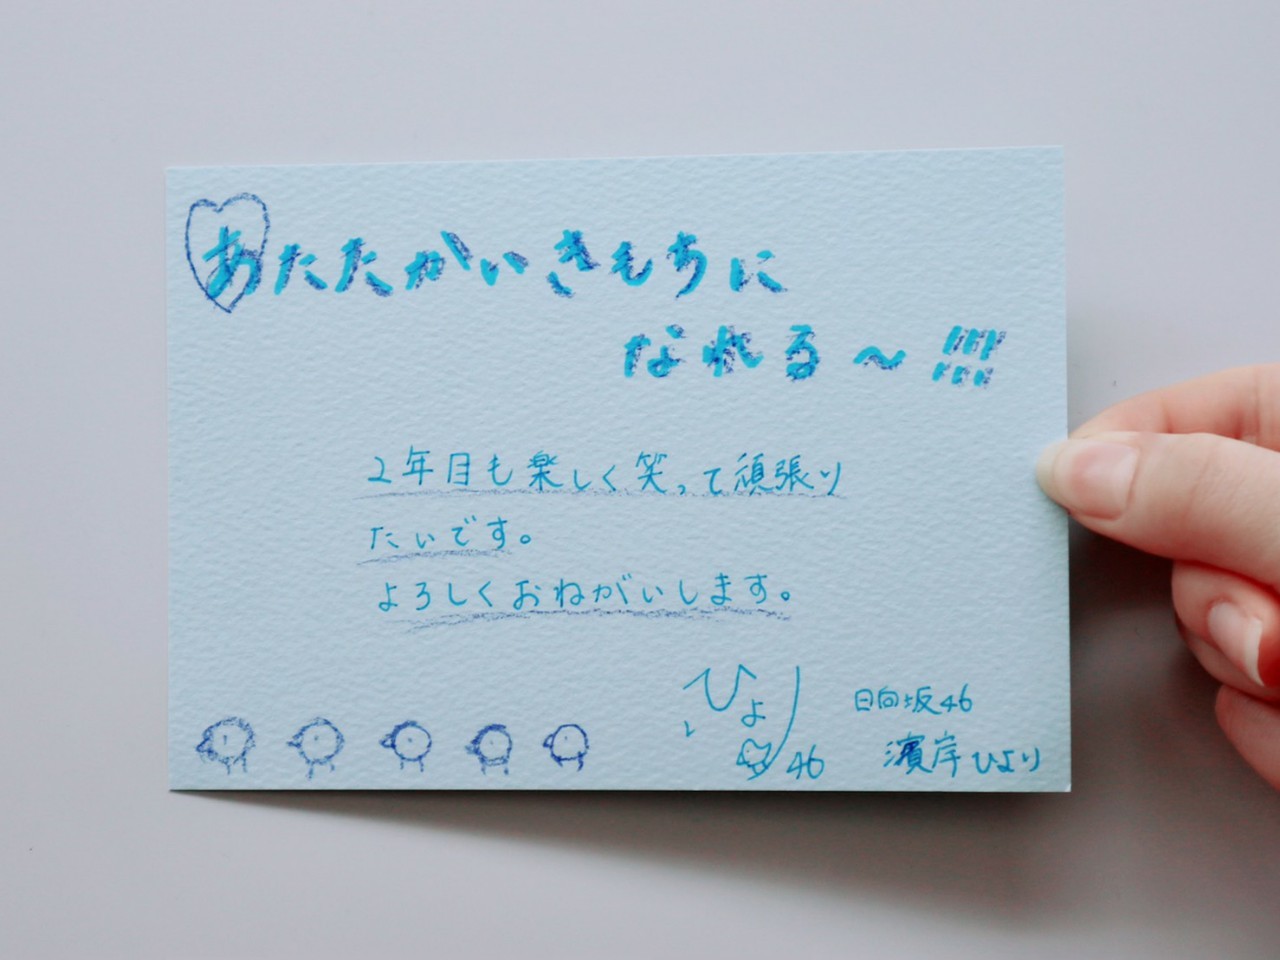 あたたかいきもちに
なれる〜!!!!
2年目も楽しく笑って頑張り
たいです。
よろしくおねがいします。
ひより
46
日向坂46
濱岸ひより